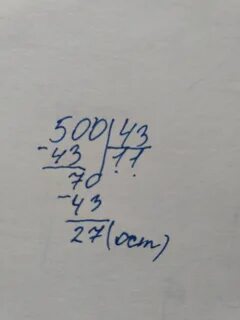 500|43
-43 |11
70
-43
27(ост)